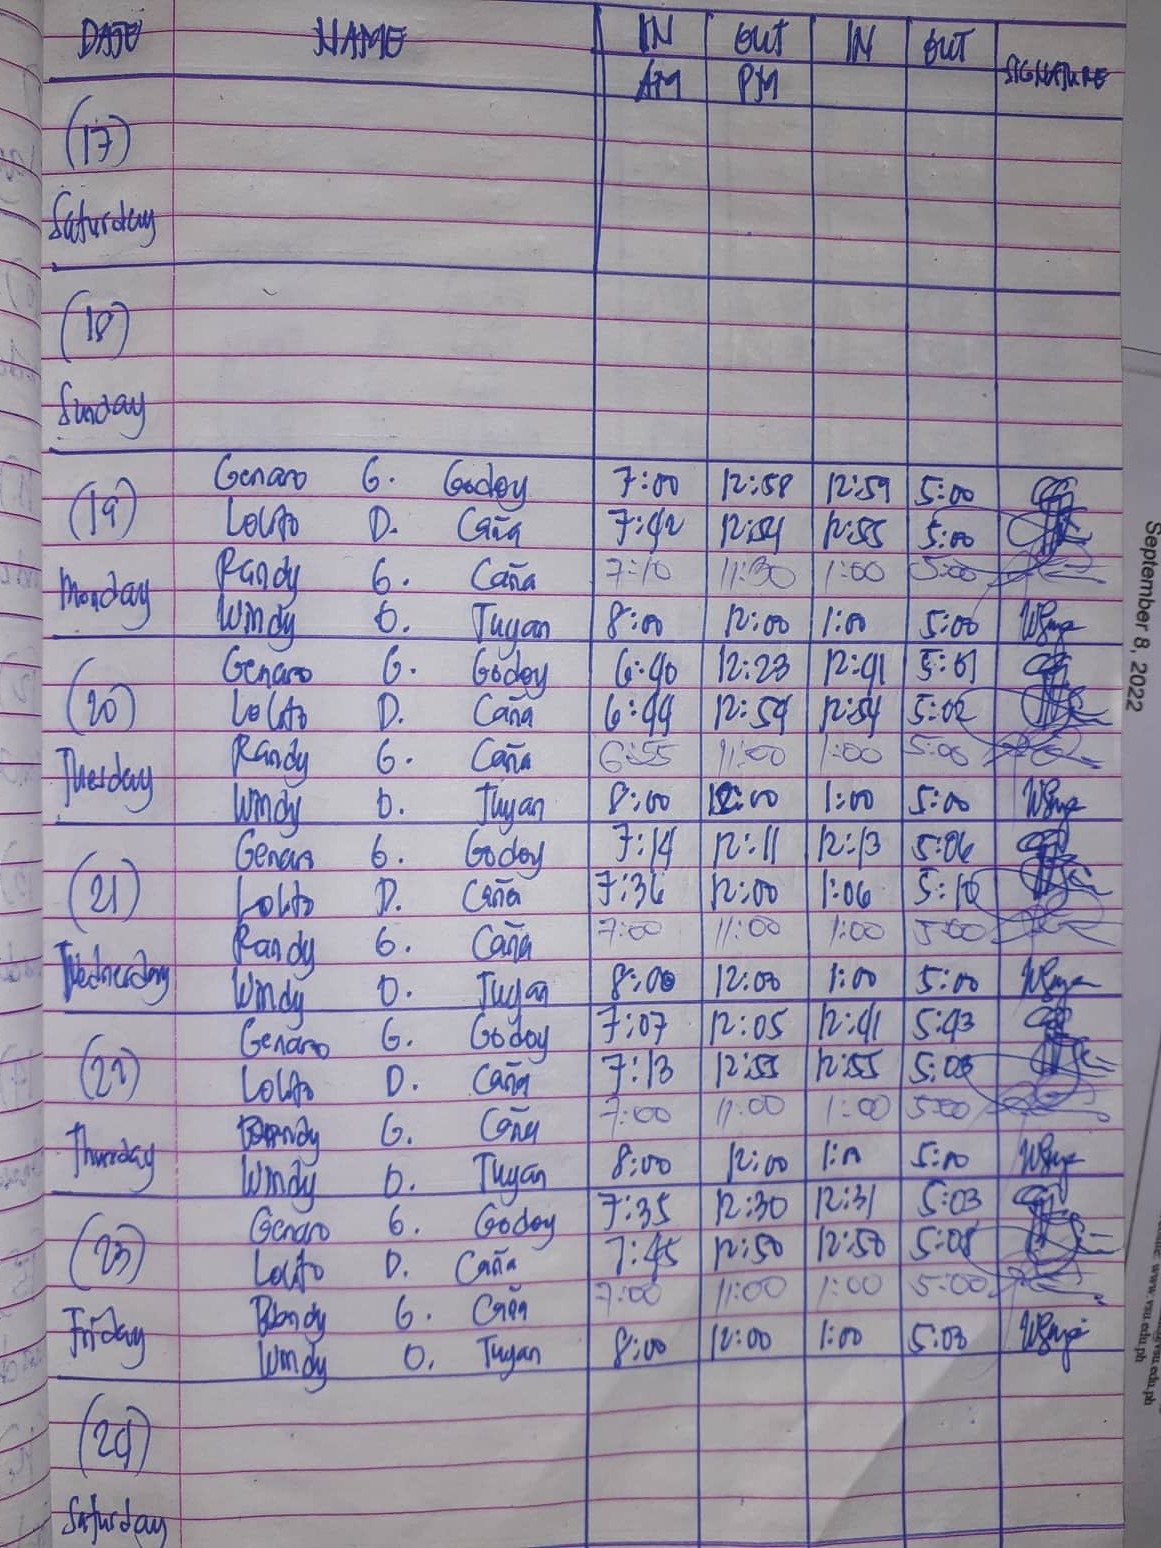 DATE NAME IN OUT IN OUT SIGNATURE
AM PM
(17)
Saturday
(18)
Sunday
Genaro G. Godoy 7:00 12:58 12:59 5:00
(19) Lolito D. Caña 7:42 12:54 12:55 5:00
Randy G. Caña 7:10 11:30 1:00 5:00
Monday Windy O. Tuyan 8:00 12:00 1:00 5:00
Genaro G. Godoy 6:40 12:23 12:41 5:01
(20) Lolito D. Caña 6:44 12:54 12:54 5:02
Randy G. Caña 6:55 11:00 1:00 5:00
Tuesday Windy O. Tuyan 8:00 12:00 1:00 5:00
Genaro G. Godoy 7:14 12:11 12:13 5:06
(21) Lolito D. Caña 7:36 12:00 1:06 5:10
Randy G. Caña 7:00 11:00 1:00 5:00
Wednesday Windy O. Tuyan 8:00 12:00 1:00 5:00
Genaro G. Godoy 7:07 12:05 12:41 5:43
(22) Lolito D. Caña 7:13 12:55 12:55 5:03
Randy G. Caña 7:00 11:00 1:00 5:00
Thursday Windy O. Tuyan 8:00 12:00 1:00 5:00
Genaro G. Godoy 7:35 12:30 12:31 5:03
(23) Lolito D. Caña 7:45 12:50 12:50 5:08
Randy G. Caña 7:00 11:00 1:00 5:00
Friday Windy O. Tuyan 8:00 12:00 1:00 5:03
(24)
Saturday
September 8, 2022
www.vsu.edu.ph